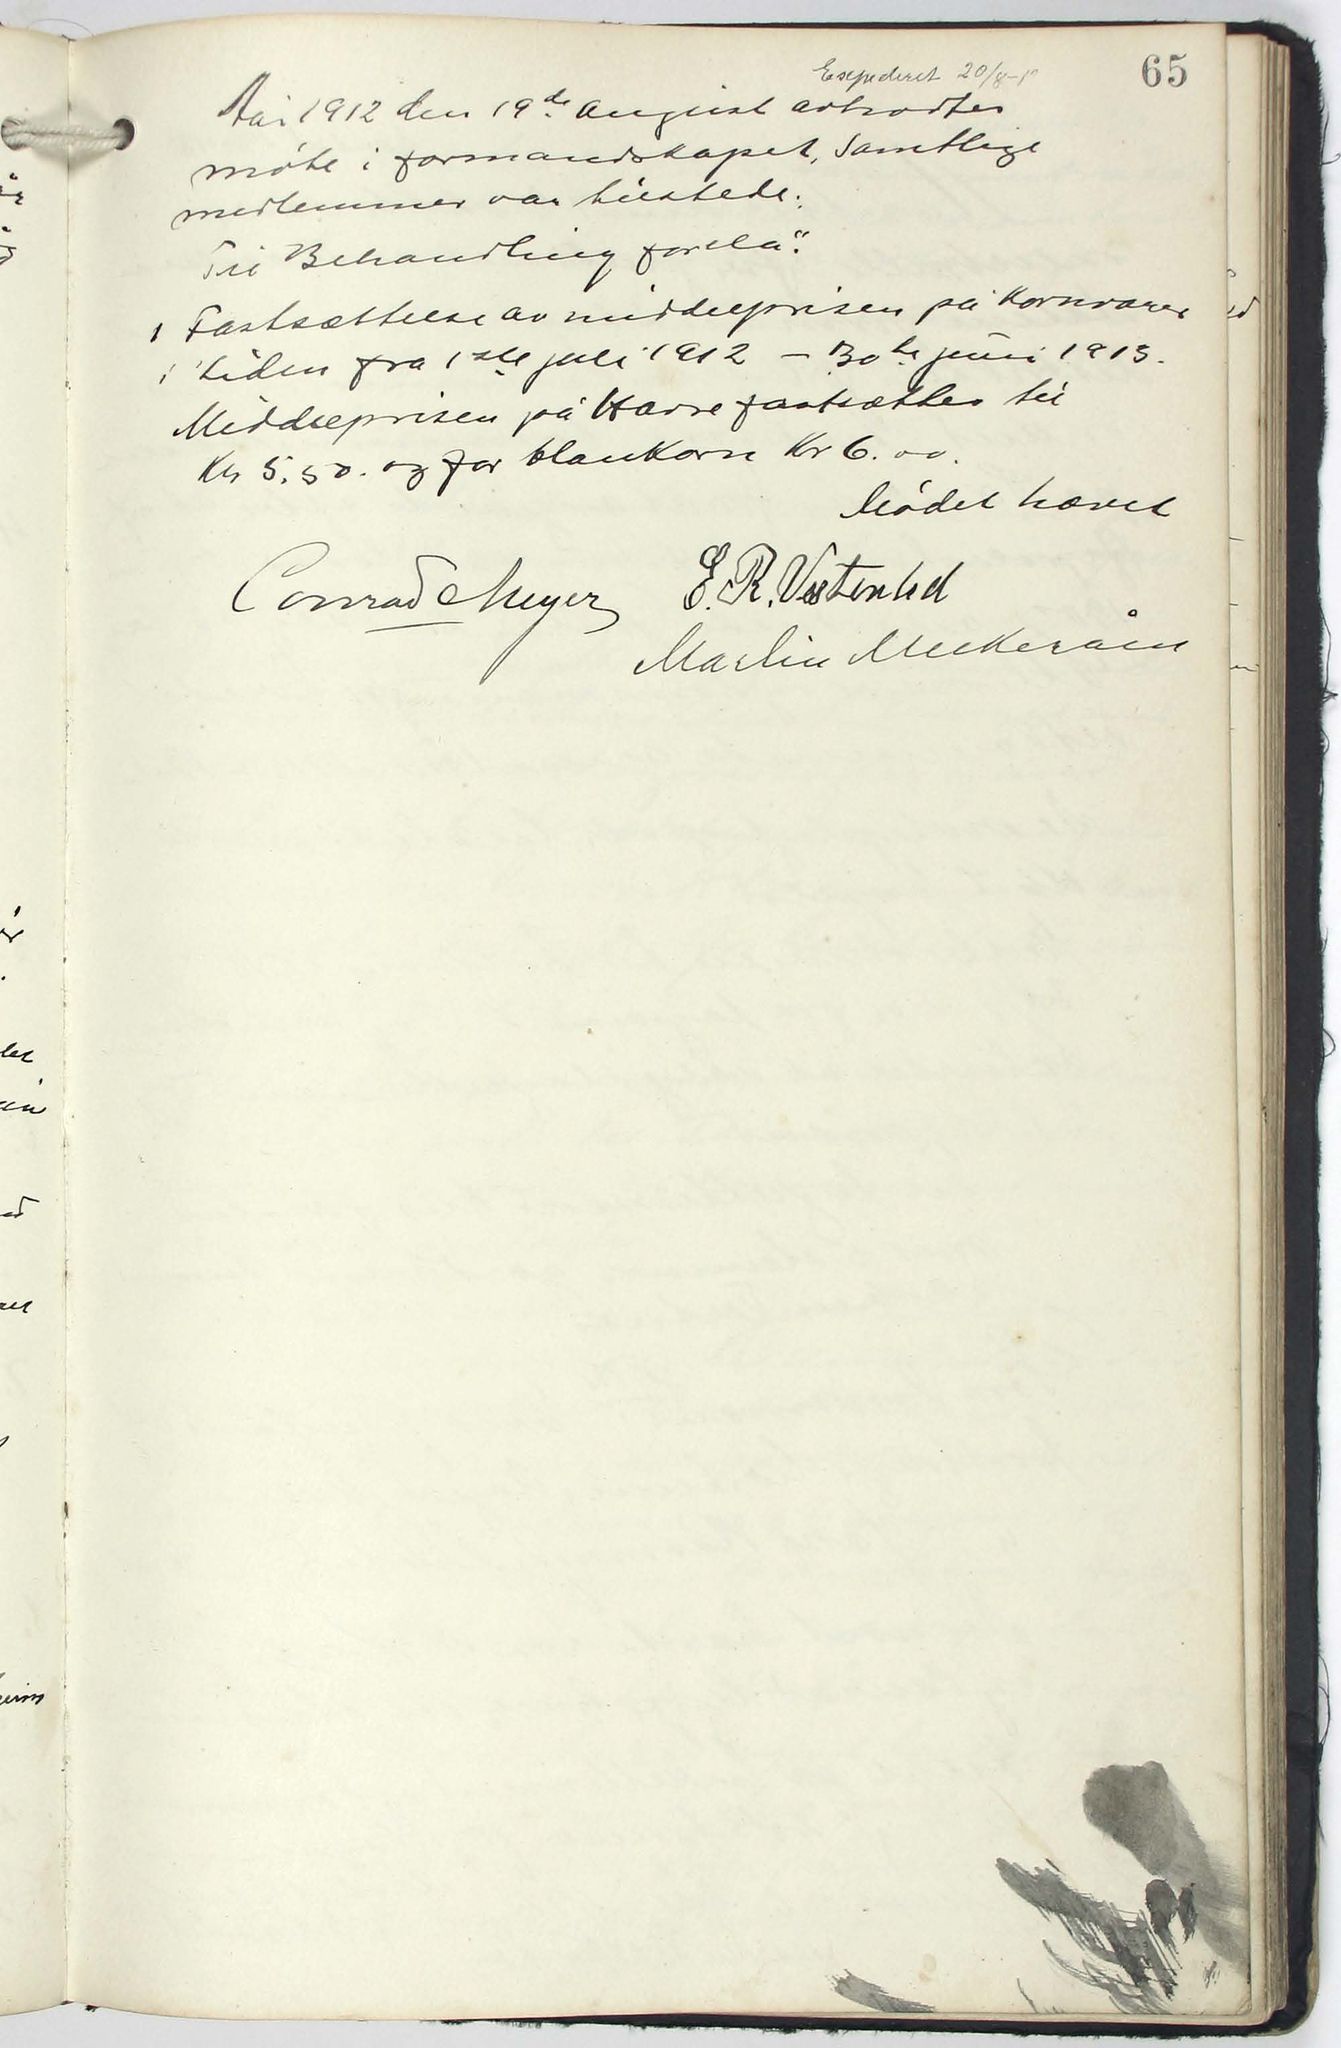 65
Expederet 20/8-1
Aar 1912 den 19de August avholdtes
møte i formandskapet. Samtlige
medlemmer var tilstede.
Til Behandling forelå:
1 Fastsættelse av middelprisen på Kornvarer
i tiden fra 1ste juli 1912 – 30te juni 1913.
Middelprisen på Havre fastsættes til
Kr 5,50. og for blankorn Kr 6.00.
Mødet hævet
Conrad Meyer E. R. Vestenhed
Martin